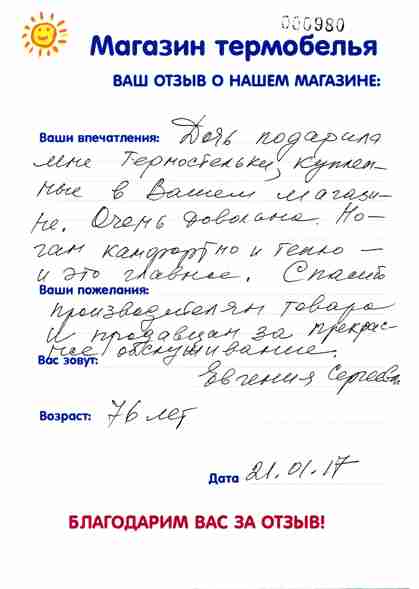 000980
Магазин термобелья
ВАШ ОТЗЫВ О НАШЕМ МАГАЗИНЕ:
Ваши впечатления: Дочь подарила
мне термостельки, куплен-
ные в Вашем магази-
не. Очень довольна. Но-
гам камфортно и тепло –
и это главное. Спасибо
Ваши пожелания:
производителям товара
и продавцам за прекрас-
ное обслуживание.
Вас зовут:
Евгения Сергеевна
Возраст: 76 лет
Дата 21.01.17
БЛАГОДАРИМ ВАС ЗА ОТЗЫВ!